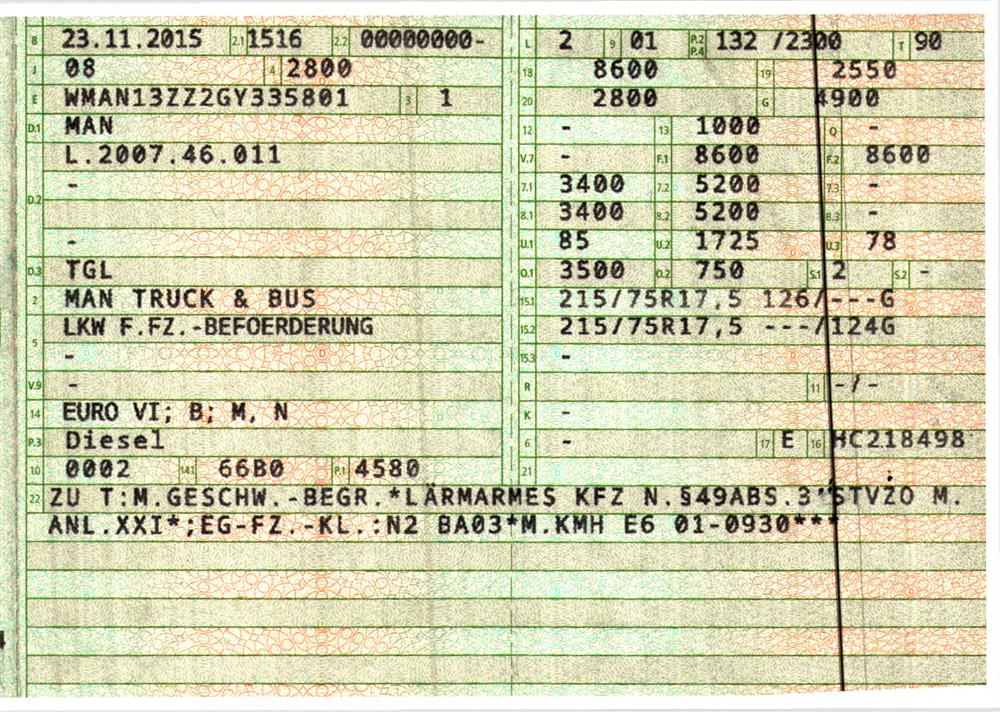 B 23.11.2015 2.1 1516 2.2 00000000-
J 08 4 2800
E WMAN13ZZ2GY335801 3 1
D.1 MAN
L.2007.46.011
D.2 -
-
D.3 TGL
2 MAN TRUCK & BUS
5 LKW F.FZ.-BEFOERDERUNG
-
V.9 -
14 EURO VI; B; M, N
P.3 Diesel
10 0002 14.1 66B0 P.1 4580
L 2 9 01 P.2 P.4 132 /2300 T 90
18 8600 19 2550
20 2800 G 4900
12 - 13 1000 Q -
V.7 - F.1 8600 F.2 8600
7.1 3400 7.2 5200 7.3 -
8.1 3400 8.2 5200 8.3 -
U.1 85 U.2 1725 U.3 78
O.1 3500 O.2 750 S.1 2 S.2 -
15.1 215/75R17,5 126/---G
15.2 215/75R17,5 ---/124G
15.3 -
R 11 -/-
K -
6 - 17 E 16 HC218498
21
22 ZU T:M.GESCHW.-BEGR.*LÄRMARMES KFZ N.§49ABS.3*STVZO M.
ANL.XXI*;EG-FZ.-KL.:N2 BA03*M.KMH E6 01-0930***